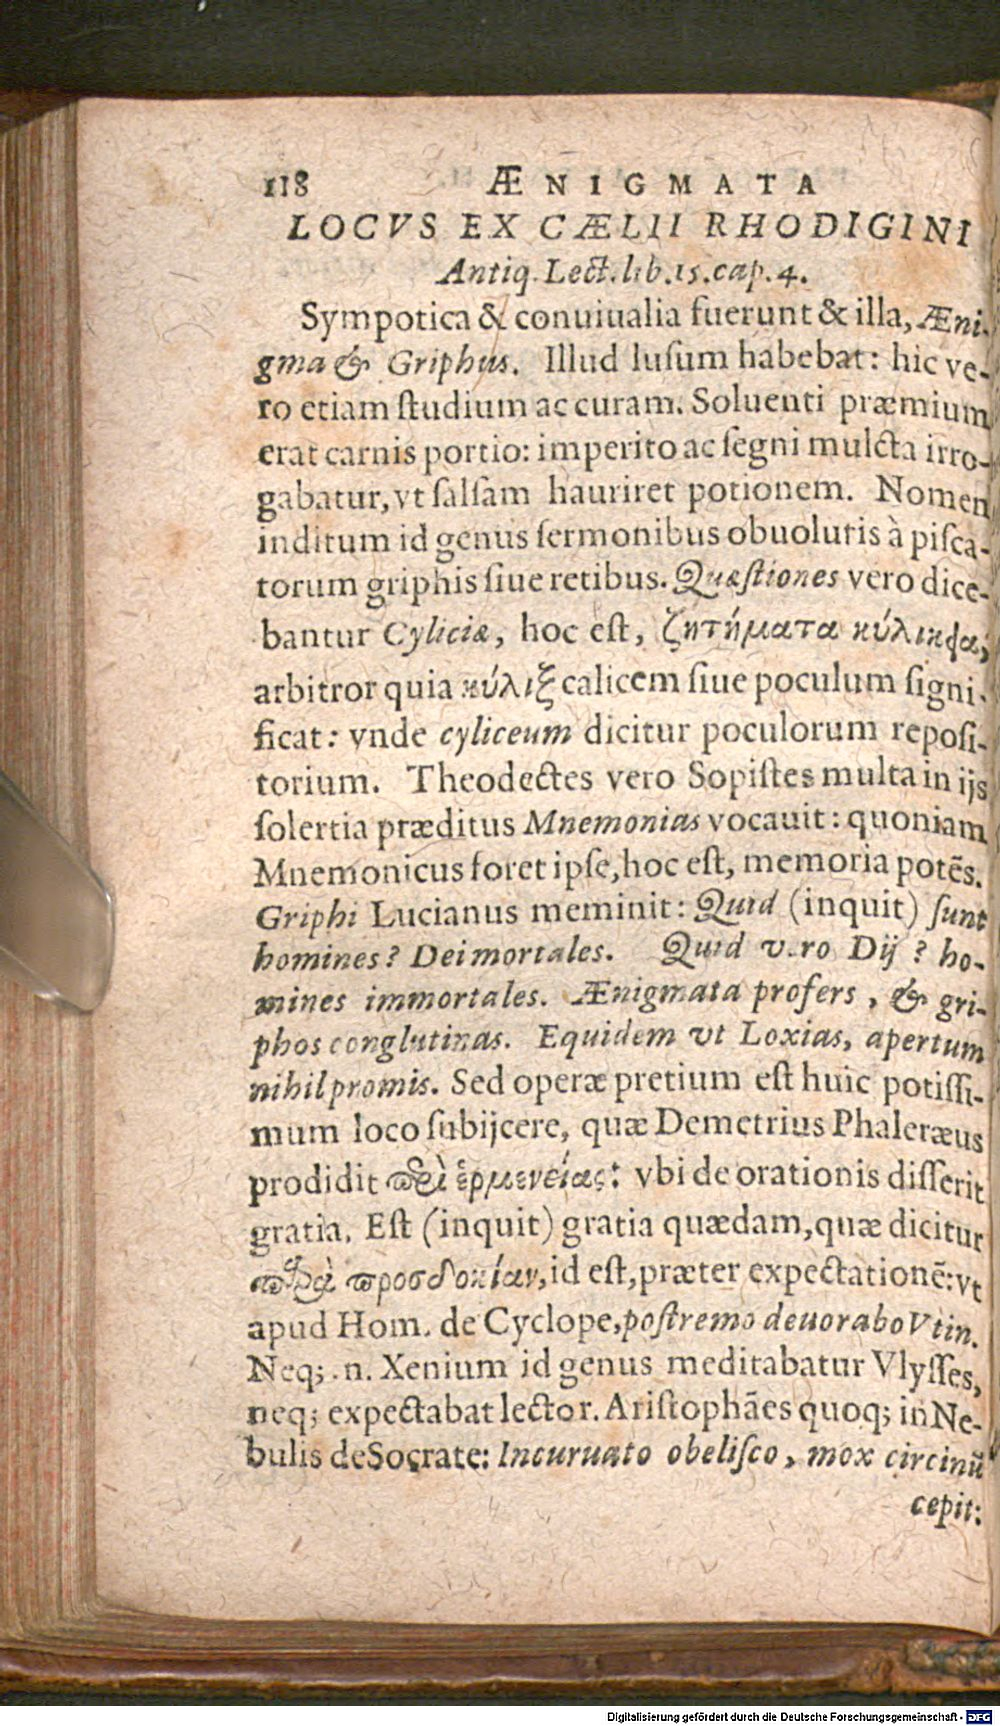 118 ÆNIGMATA
LOCVS EX CÆLII RHODIGINI
Antiq. Lect. lib. 15. cap. 4.
Sympotica & conuiualia fuerunt & illa, Æni-
gma & Griphus. Illud luſum habebat: hic ve-
ro etiam ſtudium ac curam. Soluenti præmium
erat carnis portio: imperito ac ſegni mulcta irro-
gabatur, vt ſalſam hauriret potionem. Nomen
inditum id genus ſermonibus obuolutis à piſca-
torum griphis ſiue retibus. Quæſtiones vero dice-
bantur Cyliciæ, hoc eſt, ζητήματα κύλικφα,
arbitror quia κύλιξ calicem ſiue poculum ſigni-
ficat: vnde cyliceum dicitur poculorum repoſi-
torium. Theodectes vero Sopiſtes multa in ijs
ſolertia præditus Mnemonias vocauit: quoniam
Mnemonicus foret ipſe, hoc eſt, memoria potẽs.
Griphi Lucianus meminit: Quid (inquit) ſunt
homines? Dei mortales. Quid v.ro Dij? ho-
mines immortales. Ænigmata profers, & gri-
phos conglutinas. Equidem vt Loxias, apertum
nihil promis. Sed operæ pretium eſt huic potiſſi-
mum loco ſubijcere, quæ Demetrius Phaleræus
prodidit περὶ ἑρμενείας: vbi de orationis diſſerit
gratia. Eſt (inquit) gratia quædam, quæ dicitur
παρὰ προσδοκίαν, id eſt, præter expectationẽ: vt
apud Hom. de Cyclope, poſtremo deuorabo Vtin.
Neq; .n. Xenium id genus meditabatur Vlyſſes,
neq; expectabat lector. Ariſtophães quoq; in Ne-
bulis de Socrate: Incuruato obeliſco, mox circinũ
cepit:
Digitalisierung gefördert durch die Deutsche Forschungsgemeinschaft - DFG